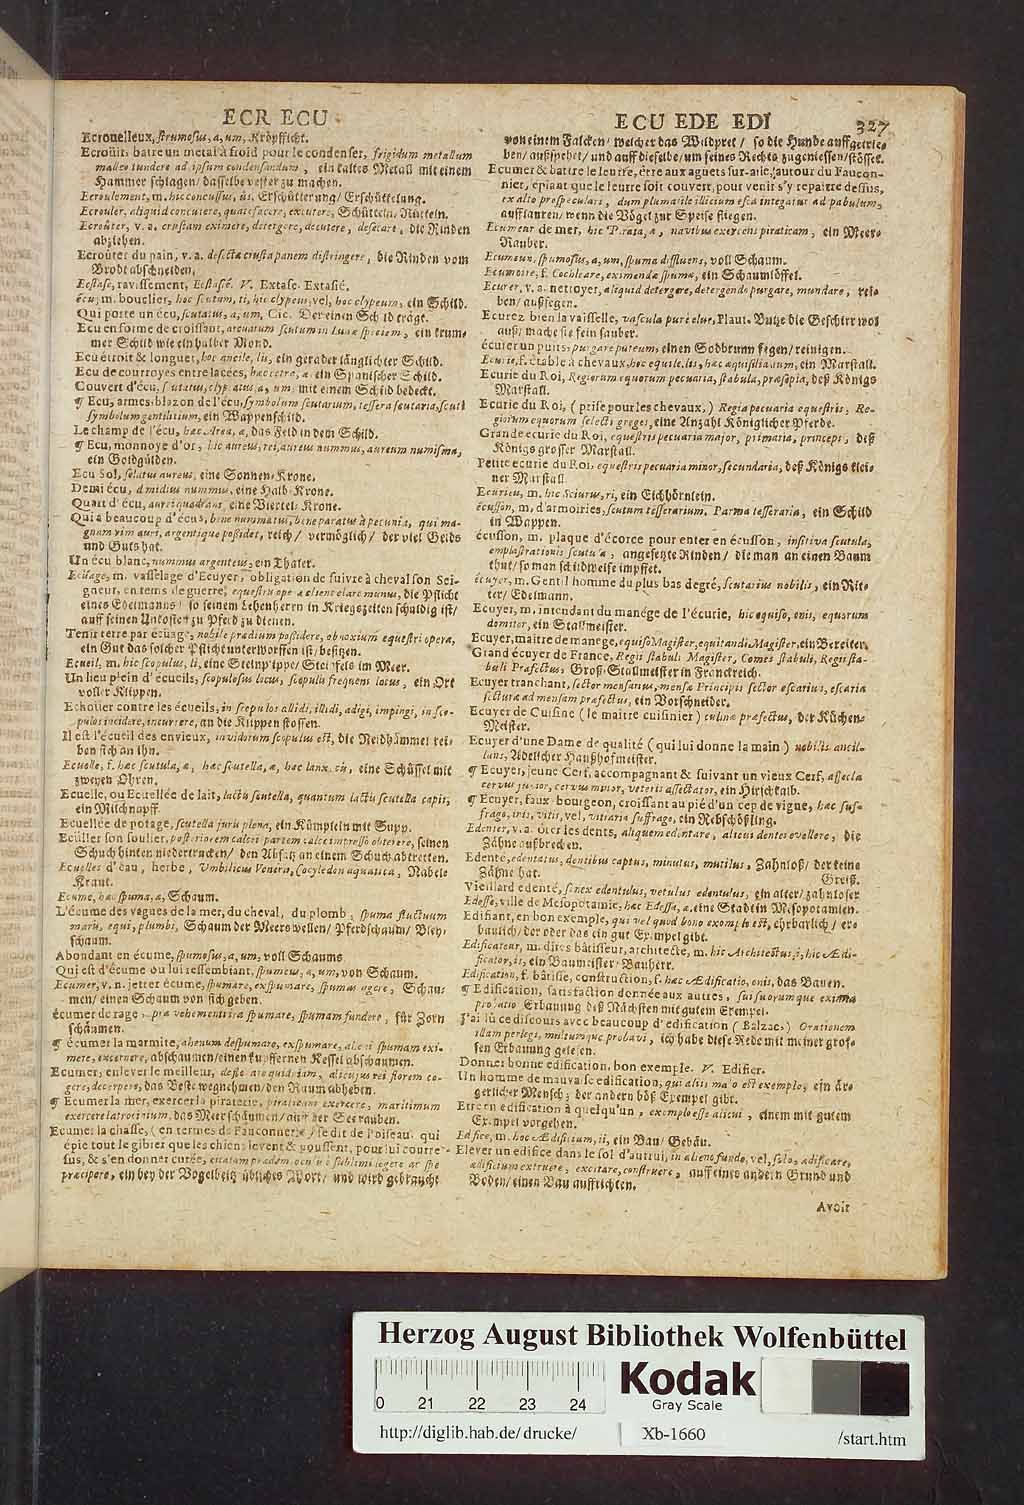 ECR ECU
Ecrouelleux, strumosus, a, um, Kröpfficht.
Ecroüir, batre un metal à froid pour le condenser, frigidum metallum
malleo tundere ad ipsum condensandum, ein kaltes Metall mit einem
Hammer schlagen/ dasselbe vester zu machen.
Ecroulement, m. hic concussus, ûs, Erschütterung/ Erschüttelung.
Ecrouler, aliquid concutere, quatefacere, excutere, Schütteln, Rütteln.
Ecroûter, v. a. crustam eximere, detergere, decutere, desecare, die Rinden
abziehen.
Ecroûter du pain, v. a. desecta crusta panem distringere, die Rinden vom
Brodt abschneiden.
Ecstase, ravissement, Ecstasié. V. Extase. Extasié.
écu, m. bouclier, hoc scutum, ti, hic clypeus, vel, hoc clypeum, ein Schild.
Qui porte un écu, scutatus, a, um, Cic. Der einen Schild trägt.
Ecu en forme de croissant, arcuatum scutum in Lunæ speciem, ein krum-
mer Schild wie ein halber Mond.
Ecu étroit & longuet, hoc ancile, lis, ein gerader länglichter Schild.
Ecu de courroyes entrelacées, hæc cetra, æ ein Spanischer Schild.
Couvert d'écu, scutatus, clypeatus, a, um, mit einem Schild bedeckt.
¶ Ecu, armes, blazon de l'écu, symbolum scutarium, tessera scutaria, scuti
symbolum gentilitium, ein Wappenschild.
Le champ de l'écu, hæc Area, æ, das Feld in dem Schild.
¶ Ecu, monnoye d'or, hic aureus, rei, aureus nummus, aureum numisma,
ein Goldgülden.
Ecu Sol, solatus aureus, eine Sonnen-Krone.
Demi écu, dimidius nummus, eine Halb-Krone.
Quart d'écu, aurei quadrans, eine Viertel-Krone.
Qui a beaucoup d'écus, bene nummatus, bene paratus à pecuniâ, qui ma-
gnam vim auri, argentique possidet, reich/ vermöglich/ der viel Gelds
und Guts hat.
Un écu blanc, nummus argenteus, ein Thaler.
Ecüage, m. vasselage d'Ecuyer, obligation de suivre à cheval son Sei-
gneur, en tems de guerre, equestris opera clientelare munus, die Pflicht
eines Edelmanns/ so seinem Lehenherrn in Kriegszeiten schuldig ist/
auff seinen Unkosten zu Pferd zu dienen.
Tenir terre par écuage, nobile prædium possidere, obnoxium equestri operæ,
ein Gut das solcher Pflicht unterworffen ist/ besitzen.
Ecueil, m. hic scopulus, li, eine Steinlippe/ Steinfels im Meer.
Un lieu plein d'écueils, scopulosus locus, scopulis frequens locus, ein Ort
voller Klippen.
Echoüer contre les écueils, in scopulos allidi, illidi, adigi, impingi, in sco-
pulos incidere, incurrere, an die Klippen stossen.
Il est l'écueil des envieux, invidorum scopulus est, die Neidhämmel rei-
ben sich an ihn.
Ecuelle, f. hæc scutula, æ, hæc scutella, æ, hæc lanx, cis, eine Schüssel mit
zweyen Ohren.
Ecuelle, ou Ecuellée de lait, lactis scutella, quantum lactis scutella capit,
ein Milchnapff.
Ecuellée de potage, scutella juris plena, ein Kümplein mit Supp.
Eculler son soulier, posteriorem calcei partem calce impresso obterere, seinen
Schuch hinten niedertrucken/ den Absatz an einem Schuch abtretten.
Ecuelles d'eau, herbe, Umbilicus Veneris, Cotyledon aquatica, Nabel-
Kraut.
Ecume, hæc spuma, æ, Schaum.
L'écume des vagues de la mer, du cheval, du plomb, spuma fluctuum
maris, equi, plumbi, Schaum der Meerswellen/ Pferdschaum/ Bley-
schaum.
Abondant en écume, spumosus, a, um, voll Schaums.
Qui est d'écume ou lui ressemblant, spumeus, a, um, von Schaum.
Ecumer, v. n. jetter écume, spumare, exspumare, spumas agere, Schau-
men/ einen Schaum von sich geben.
écumer de rage, præ vehementi ira spumare, spumam fundere, für Zorn
schäumen.
¶ écumer la marmite, ahenum despumare, exspumare, aheni spumam exi-
mere, excernere, abschaumen/ einen kupffernen Kessel abschaumen.
Ecumer, enlever le meilleur, de
gere, decerpere, das Beste wegnehmen/ den Raum abheben.
¶ Ecumer la mer, exercer la piraterie, piraticam exercere, maritimum
exercere latrocinium, das Meer schäumen/ auff der See rauben.
Ecumer la chasse, (en termes de Fauconnerie) se dit de l'oiseau, qui
épie tout le gibier que les chiens levent & poussent, pour lui contre-
sus, & s'en donner curée,
præcipere, ein bey der Vogelbeitz übliches Wort/ und wird gebraucht
ECU EDE EDI 327
von einem Falcken/ welcher das Wildpret/ so die Hunde auffgetrie-
ben/ außspehet/ und auff dieselbe/ um seines Rechts zu geniessen/ stösset.
Ecumer & battre le leurre, être aux aguets sur-aile, autour du Faucon-
nier, épiant que le leurre soit couvert, pour venir s'y repaitre dessus,
ex alto prospeculari, dum plumatile illicium esca integatur ad pabulum,
aufflauren/ wenn die Vögel zur Speise fliegen.
Ecumeur de mer, hic Pirata, æ, navibus exercens piraticam, ein Meer-
Rauber.
Ecumeux, spumosus, a, um, spuma diffluens, voll Schaum.
Ecumoire, f. Cochleare, eximendæ spumæ, ein Schaumlöffel.
Ecurer, v. a. nettoyer, aliquid detergere, detergendo purgare, mundare, rei-
ben/ außfegen.
Ecurez bien la vaisselle, vascula pure elue, Plaut. Butze die Geschirr wol
auß/ mache sie fein sauber.
écurer un puits, purgare puteum, einen Sodbrunn fegen/ reinigen.
Ecurie, f. étable à chevaux, hoc equile, lis, hæc aquisiliaium, ein Marstall.
Ecurie du Roi, Regiorum equorum pecuaria, stabula, præsepia, deß Königs
Marstall.
Ecurie du Roi, (prise pour les chevaux,) Regia pecuaria equestris, Re-
giorum equorum selecti greges, eine Anzahl Königlicher Pferde.
Grande ecurie du Roi, equestris pecuaria major, primaria, princeps, deß
Königs grosser Marstall.
Petite ecurie du Roi, equestris pecuaria minor, secundaria, deß Königs klei-
ner Marstall.
Ecurieu, m. hic Sciurus, ri, ein Eichhörnlein.
écusson, m, d'armoiries, scutum tesserarium, Parma tesseraria, ein Schild
in Wappen.
écusson, m. plaque d'écorce pour enter en écusson, insitiva scutula,
emplastrationis scutula, angesetzte Rinden/ die man an einen Baum
thut/ so man schildweise impffet.
écuyer, m. Gentil'homme du plus bas degré, scutarius nobilis, ein Rit-
ter/ Edelmann.
Ecuyer, m, intendant du manége de l'écurie, hic equiso, onis, equorum
domitor, ein Stallmeister.
Ecuyer, maître de manege, equiso Magister, equitandi Magister, ein Bereiter.
Grand écuyer de France, Regii stabuli Magister, Comes stabuli, Regii sta-
buli Præfectus, Groß-Stallmeister in Franckreich.
Ecuyer tranchant, sector mensarius, mensæ Principis sector escarius, escariæ
secturæ ad mensam præfectus, ein Vorschneider.
Ecuyer de Cuisine (le maitre cuisinier) culinæ præfectus, der Küchen-
Meister.
Ecuyer d'une Dame de qualité (qui lui donne la main) nobilis ancil-
lans, Adelicher Haußhofmeister.
¶ Ecuyer, jeune Cerf, accompagnant & suivant un vieux Cerf, assecla
cervus junior, cervus minor, veteris assectator, ein Hirschkalb.
¶ Ecuyer, faux-bourgeon, croissant au pié d'un cep de vigne, hæc suf-
frago, inis, vitis, vel, vitiaria suffrago, ein Rebschößling.
Edenter, v. a. ôter les dents, aliquem edentare, alicui dentes evellere, die
Zähne außbrechen.
Edenté, edentatus, dentibus captus, minutus, mutilus, Zahnloß/ der keine
Zähne hat. Greiß.
Vieillard edenté, senex edentulus, vetulus edentulus, ein alter/ zahnloser
Edesse, ville de Mesopotamie, hæc Edessa, æ, eine Stadt in Mesopotamien.
Edifiant, en bon exemple, qui vel quod bono exemplo est, ehrbarlich/ er-
baulich/ der oder das ein gut Exempel gibt.
Edificateur, m. dites bâtisseur, architecte, m. hic Architectus, i, hic Ædi-
ficator, is, ein Baumeister/ Bauherr.
Edification, f. bâtisse, construction, f. hæc Ædificatio, onis, das Bauen.
¶ Edification, satisfaction donnée aux autres, sui suorumque eximia
probatio Erbauung deß Nächsten mit gutem Exempel.
J'ai lû ce discours avec beaucoup d'edification (Balzac) Orationem
illam perlegi, multumque probavi, ich habe diese Rede mit meiner gros-
sen Erbauung gelesen.
Donner bonne edification, bon exemple. V. Edifier.
Un homme de mauvaise edification, qui aliis malo est exemplo, ein är-
gerlicher Mensch/ der andern böß Exempel gibt.
Etre en edification à quelqu'un, exemplo esse alicui, einem mit gutem
Exempel vorgehen.
Edifice, m. hoc Ædificium, ii, ein Bau/ Gebäu.
Elever un edifice dans le sol d'autrui, in alieno fundo, vel, solo, ædificare,
ædificium extruere, excitare, construere, auff eines andern Grund und
Boden/ einen Bau auffrichten.
Avoir
Herzog August Bibliothek Wolfenbüttel
0 21 22 23 24
Kodak
Gray Scale
http://diglib.hab.de/drucke/ Xb-1660 /start.htm